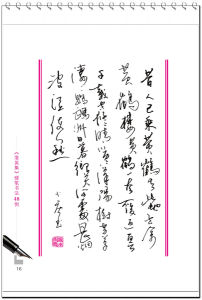 昔人已乘黄鹤去此地空余
黄鹤楼黄鹤一去不复返
千载空悠悠晴川历历汉阳树芳草
萋萋鹦鹉洲日暮乡关何处是烟
波江上使人愁
硬笔书法48例
16